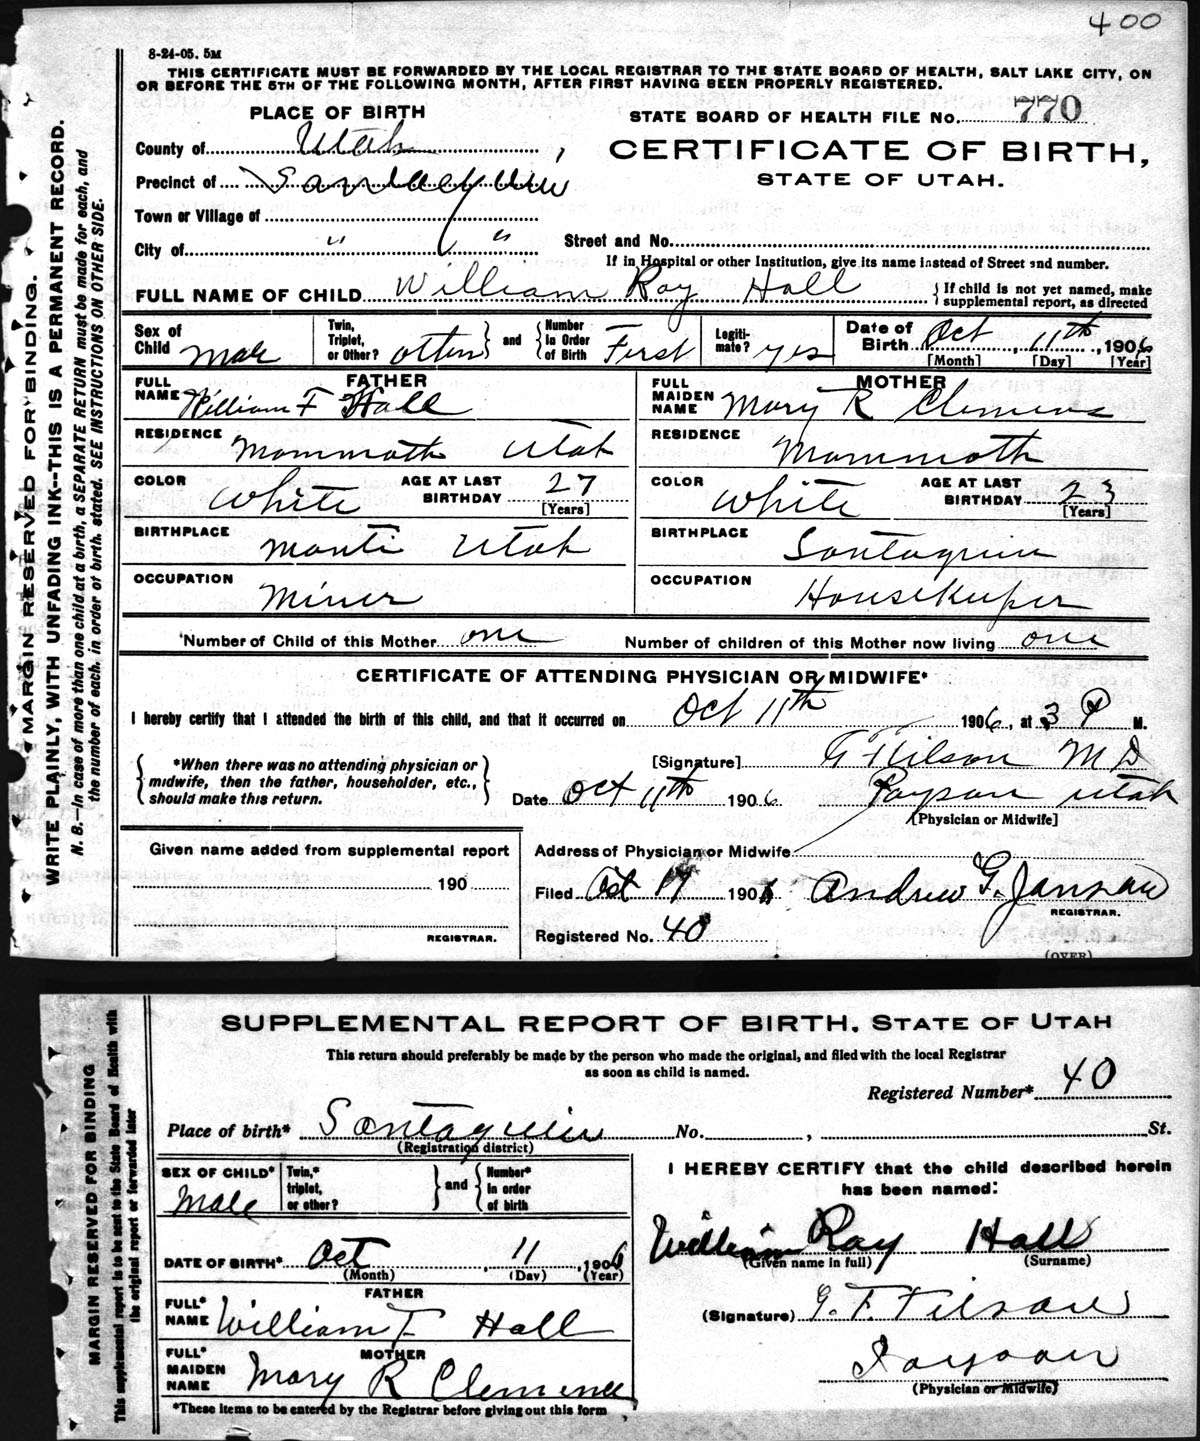 400
8-24-05. 5M
THIS CERTIFICATE MUST BE FORWARDED BY THE LOCAL REGISTRAR TO THE STATE BOARD OF HEALTH, SALT LAKE CITY, ON
OR BEFORE THE 5TH OF THE FOLLOWING MONTH, AFTER FIRST HAVING BEEN PROPERLY REGISTERED.
PLACE OF BIRTH
STATE BOARD OF HEALTH FILE No. 770
County of Utah,
CERTIFICATE OF BIRTH,
STATE OF UTAH.
Precinct of
Town or Village of
City of " "
Street and No.
If in Hospital or other Institution, give its name instead of Street and number.
FULL NAME OF CHILD William Ray Hall
} If child is not yet named, make
supplemental report, as directed
Sex of
Child Male
Twin,
Triplet,
or Other?
} and {
Number
in Order
of Birth First
Legiti-
mate? yes
Date of
Birth Oct, 11th, 1906
[Month] [Day] [Year]
FATHER
FULL
NAME William F Hall
RESIDENCE Mammoth Utah
COLOR White
AGE AT LAST
BIRTHDAY 27
[Years]
BIRTHPLACE Manti Utah
OCCUPATION Miner
MOTHER
FULL
MAIDEN
NAME Mary R Clemens
RESIDENCE Mammoth
COLOR White
AGE AT LAST
BIRTHDAY 23
[Years]
BIRTHPLACE Santaquin
OCCUPATION Housekeeper
Number of Child of this Mother one
Number of children of this Mother now living one
CERTIFICATE OF ATTENDING PHYSICIAN OR MIDWIFE*
I hereby certify that I attended the birth of this child, and that it occurred on Oct 11th 1906, at 3 P M.
{ *When there was no attending physician or
midwife, then the father, householder, etc.,
should make this return. }
[Signature] G F Tilson M D
Date Oct 11th 1906 Payson Utah
[Physician or Midwife]
Given name added from supplemental report
190
REGISTRAR.
Address of Physician or Midwife
Filed Oct 1906 Andrew G. Jansan
REGISTRAR.
Registered No. 40
(OVER)
MARGIN RESERVED FOR BINDING.
WRITE PLAINLY, WITH UNFADING INK--THIS IS A PERMANENT RECORD.
N. B.--In case of more than one child at a birth, a SEPARATE RETURN must be made for each, and
the number of each, in order of birth, stated. SEE INSTRUCTIONS ON OTHER SIDE.
SUPPLEMENTAL REPORT OF BIRTH, STATE OF UTAH
This return should preferably be made by the person who made the original, and filed with the local Registrar
as soon as child is named.
Registered Number* 40
Place of birth* Santaquin No. , St.
(Registration district)
SEX OF CHILD*
Male
Twin,*
triplet,
or other?
} and {
Number*
in order
of birth
DATE OF BIRTH* Oct 11, 1906
(Month) (Day) (Year)
FATHER
FULL*
NAME William F Hall
MOTHER
FULL*
MAIDEN
NAME Mary R
*These items to be entered by the Registrar before giving out this form
I HEREBY CERTIFY that the child described herein
has been named:
William Ray Hall
(Given name in full) (Surname)
(Signature) G. F. Tilson
Payson
(Physician or Midwife)
MARGIN RESERVED FOR BINDING
This supplemental report is to be sent to the State Board of Health with
the original report or forwarded later